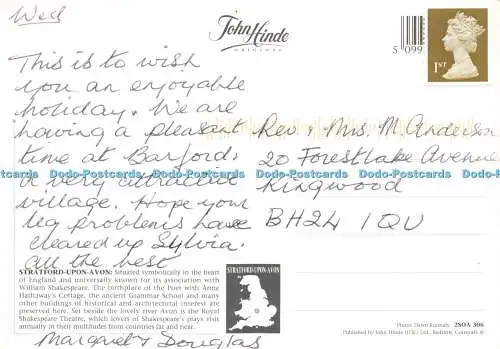 Wed
This is to wish
you an enjoyable
holiday. We are
having a pleasant
time at Barford,
a very attractive
village. Hope your
leg problems have
cleared up Sylvia.
All the best
Margaret & Douglas
John Hinde
ORIGINAL
5 099
1ST
Rev. & Mrs. M. Anderson
20 Forestlake Avenue
Ringwood
BH24 1QU
Dodo-Postcards Dodo-Postcards Dodo-Postcards Dodo-Postcards Dodo-Postcards
STRATFORD-UPON-AVON: Situated symbolically in the heart
of England and universally known for its association with
William Shakespeare. The birthplace of the Poet with Anne
Hathaway's Cottage, the ancient Grammar School and many
other buildings of historical and architectural interest are
preserved here. Set beside the lovely river Avon is the Royal
Shakespeare Theatre, which lovers of Shakespeare's plays visit
annually in their multitudes from countries far and near.
STRATFORD-UPON-AVON
2SOA 306
Published by John Hinde (U.K.) Ltd., Redruth, Cornwall ®